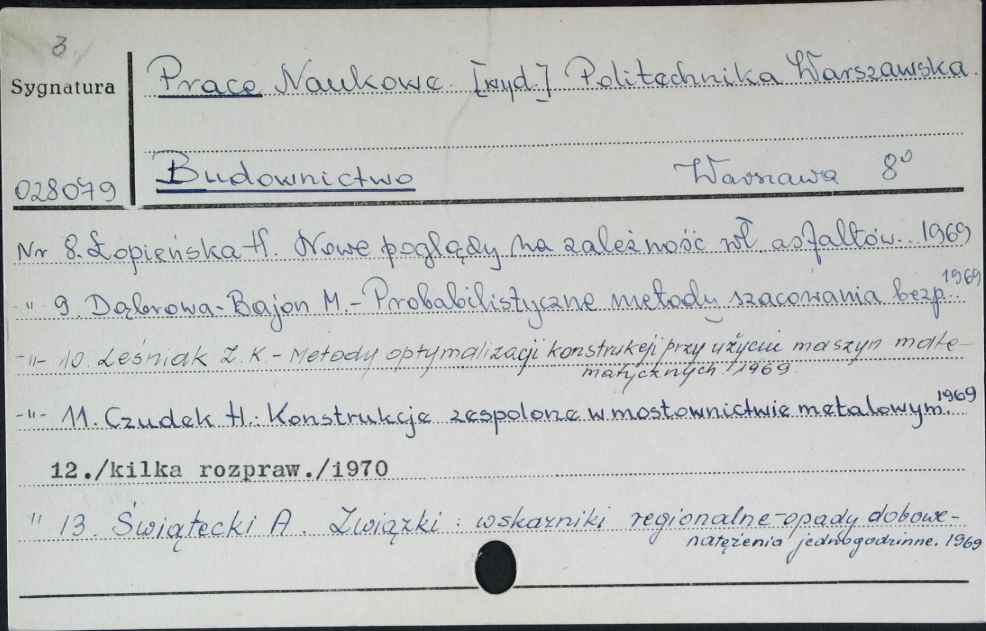 3.
Sygnatura
Prace Naukowe. [wyd.] Politechnika Warszawska.
028079
Budownictwo Warszawa 8°
Nr 8. Łopieńska H. Nowe poglądy na zależność wł. asfaltów... 1969
" 9. Dąbrowa-Bajon M. - Probabilistyczne metody szacowania bezp... 1969
-"- 10. Leśniak Z.K - Metody optymalizacji konstrukcji przy użyciu maszyn mate-
matycznych 1969
-"- 11. Czudek H.: Konstrukcje zespolone w mostownictwie metalowym. 1969
12./kilka rozpraw./1970
" 13. Świątecki A. Związki: wskaźniki regionalne-opady dobowe-
natężenia jednogodzinne. 1969